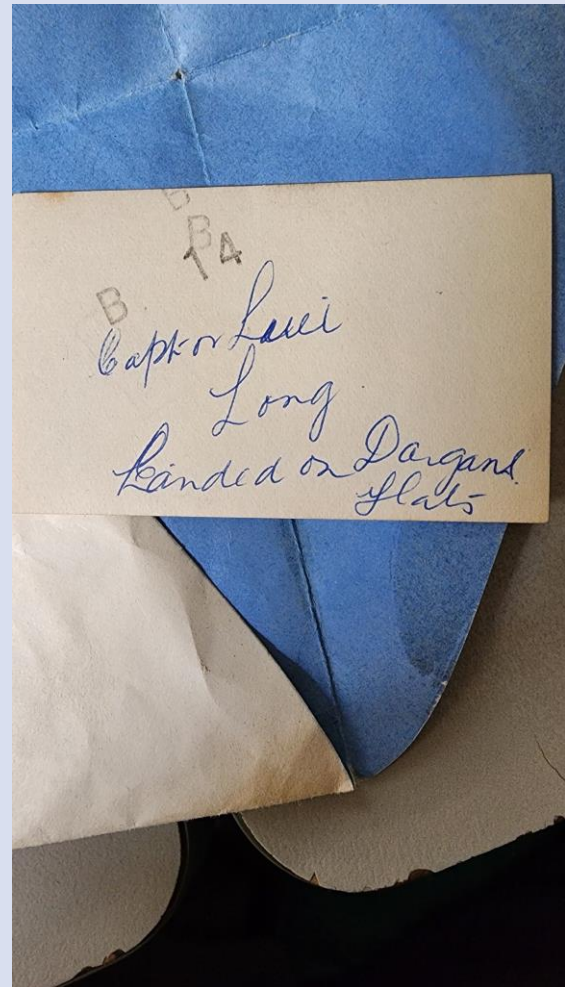 B
B
14
B
Capt or Laui
Long
Landed on Dargans
flats